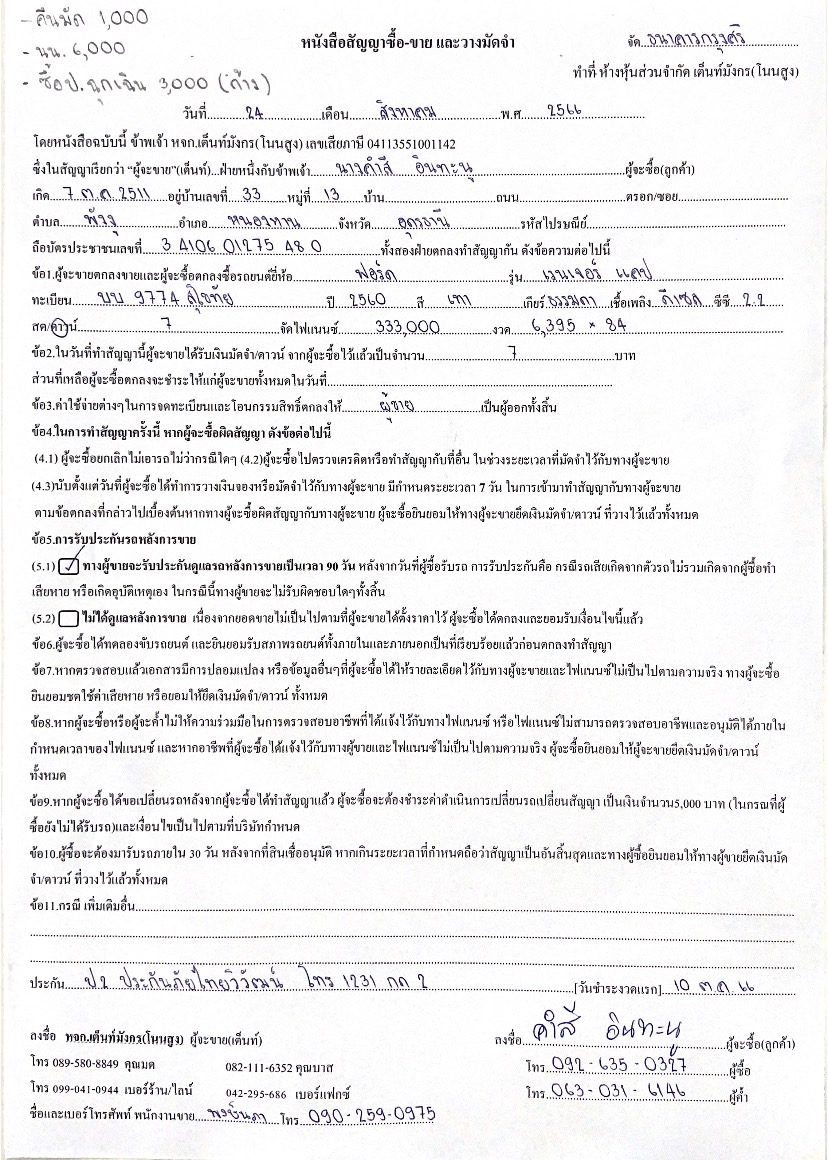 - คืนมัด 1,000
- นน. 6,000
- ซื้อป.ฉุกเฉิน 3,000 (ค้าง)
หนังสือสัญญาซื้อ-ขาย และวางมัดจำ
จัด ธนาคารกรุงศรี
ทำที่ ห้างหุ้นส่วนจำกัด เต็นท์มังกร(โนนสูง)
วันที่ 24 เดือน สิงหาคม พ.ศ 2566
โดยหนังสือฉบับนี้ ข้าพเจ้า หจก.เต็นท์มังกร(โนนสูง) เลขเสียภาษี 04113551001142
ซึ่งในสัญญาเรียกว่า "ผู้จะขาย"(เต็นท์)...ฝ่ายหนึ่งกับข้าพเจ้า นางคำสี อินทะนู ผู้จะซื้อ(ลูกค้า)
เกิด 7 ต.ค 2511 อยู่บ้านเลขที่ 33 หมู่ที่ 13 บ้าน ถนน ตรอก/ซอย
ตำบล พังงู อำเภอ หนองหาน จังหวัด อุดรธานี รหัสไปรษณีย์
ถือบัตรประชาชนเลขที่ 3 4106 01275 48 0 ทั้งสองฝ่ายตกลงทำสัญญากัน ดังข้อความต่อไปนี้
ข้อ1.ผู้จะขายตกลงขายและผู้จะซื้อตกลงซื้อรถยนต์ยี่ห้อ ฟอร์ด รุ่น เรนเจอร์ แคป
ทะเบียน บบ 9774 สุโขทัย ปี 2560 สี เทา เกียร์ ธรรมดา เชื้อเพลิง ดีเซล ซีซี 2.2
สด/ดาวน์ 7 จัดไฟแนนซ์ 333,000 งวด 6,395 × 84
ข้อ2.ในวันที่ทำสัญญานี้ผู้จะขายได้รับเงินมัดจำ/ดาวน์ จากผู้จะซื้อไว้แล้วเป็นจำนวน 7 บาท
ส่วนที่เหลือผู้จะซื้อตกลงจะชำระให้แก่ผู้จะขายทั้งหมดในวันที่
ข้อ3.ค่าใช้จ่ายต่างๆในการจดทะเบียนและโอนกรรมสิทธิ์ตกลงให้ ผู้ขาย เป็นผู้ออกทั้งสิ้น
ข้อ4.ในการทำสัญญาครั้งนี้ หากผู้จะซื้อผิดสัญญา ดังข้อต่อไปนี้
(4.1) ผู้จะซื้อยกเลิกไม่เอารถไม่ว่ากรณีใดๆ (4.2)ผู้จะซื้อไปตรวจเครดิตหรือทำสัญญากับที่อื่น ในช่วงระยะเวลาที่มัดจำไว้กับทางผู้จะขาย
(4.3)นับตั้งแต่วันที่ผู้จะซื้อได้ทำการวางเงินจองหรือมัดจำไว้กับทางผู้จะขาย มีกำหนดระยะเวลา 7 วัน ในการเข้ามาทำสัญญากับทางผู้จะขาย
ตามข้อตกลงที่กล่าวไปเบื้องต้นหากทางผู้จะซื้อผิดสัญญากับทางผู้จะขาย ผู้จะซื้อยินยอมให้ทางผู้จะขายยึดเงินมัดจำ/ดาวน์ ที่วางไว้แล้วทั้งหมด
ข้อ5.การรับประกันรถหลังการขาย
(5.1) ทางผู้ขายจะรับประกันดูแลรถหลังการขายเป็นเวลา 90 วัน หลังจากวันที่ผู้ซื้อรับรถ การรับประกันคือ กรณีรถเสียเกิดจากตัวรถไม่รวมเกิดจากผู้ซื้อทำ
เสียหาย หรือเกิดอุบัติเหตุเอง ในกรณีนี้ทางผู้ขายจะไม่รับผิดชอบใดๆทั้งสิ้น
(5.2) ไม่ได้ดูแลหลังการขาย เนื่องจากยอดขายไม่เป็นไปตามที่ผู้จะขายได้ตั้งราคาไว้ ผู้จะซื้อได้ตกลงและยอมรับเงื่อนไขนี้แล้ว
ข้อ6.ผู้จะซื้อได้ทดลองขับรถยนต์ และยินยอมรับสภาพรถยนต์ทั้งภายในและภายนอกเป็นที่เรียบร้อยแล้วก่อนตกลงทำสัญญา
ข้อ7.หากตรวจสอบแล้วเอกสารมีการปลอมแปลง หรือข้อมูลอื่นๆที่ผู้จะซื้อได้ให้รายละเอียดไว้กับทางผู้จะขายและไฟแนนซ์ไม่เป็นไปตามความจริง ทางผู้จะซื้อ
ยินยอมชดใช้ค่าเสียหาย หรือยอมให้ยึดเงินมัดจำ/ดาวน์ ทั้งหมด
ข้อ8.หากผู้จะซื้อหรือผู้จะค้ำไม่ให้ความร่วมมือในการตรวจสอบอาชีพที่ได้แจ้งไว้กับทางไฟแนนซ์ หรือไฟแนนซ์ไม่สามารถตรวจสอบอาชีพและอนุมัติได้ภายใน
กำหนดเวลาของไฟแนนซ์ และหากอาชีพที่ผู้จะซื้อได้แจ้งไว้กับทางผู้ขายและไฟแนนซ์ไม่เป็นไปตามความจริง ผู้จะซื้อยินยอมให้ผู้จะขายยึดเงินมัดจำ/ดาวน์
ทั้งหมด
ข้อ9.หากผู้จะซื้อได้ขอเปลี่ยนรถหลังจากผู้จะซื้อได้ทำสัญญาแล้ว ผู้ซื้อจะต้องชำระค่าดำเนินการเปลี่ยนรถเปลี่ยนสัญญา เป็นเงินจำนวน5,000 บาท (ในกรณที่ผู้
ซื้อยังไม่ได้รับรถ)และเงื่อนไขเป็นไปตามที่บริษัทกำหนด
ข้อ10.ผู้ซื้อจะต้องมารับรถภายใน 30 วัน หลังจากที่สินเชื่ออนุมัติ หากเกินระยะเวลาที่กำหนดถือว่าสัญญาเป็นอันสิ้นสุดและทางผู้ซื้อยินยอมให้ทางผู้ขายยึดเงินมัด
จำ/ดาวน์ ที่วางไว้แล้วทั้งหมด
ข้อ11.กรณี เพิ่มเติมอื่น
ประกัน ป.2 ประกันภัยไทยวิวัฒน์ โทร 1231 กด 2 [วันชำระงวดแรก] 10 ต.ค 66
ลงชื่อ หจก.เต็นท์มังกร(โนนสูง) ผู้จะขาย(เต็นท์)
ลงชื่อ คำสี อินทะนู ผู้จะซื้อ(ลูกค้า)
โทร 089-580-8849 คุณมด 082-111-6352 คุณบาส โทร 092-635-0327 ผู้ซื้อ
โทร 099-041-0944 เบอร์ร้าน/ไลน์ 042-295-686 เบอร์แฟกซ์ โทร 063-031-6146 ผู้ค้ำ
ชื่อและเบอร์โทรศัพท์ พนักงานขาย โทร 090-259-0975